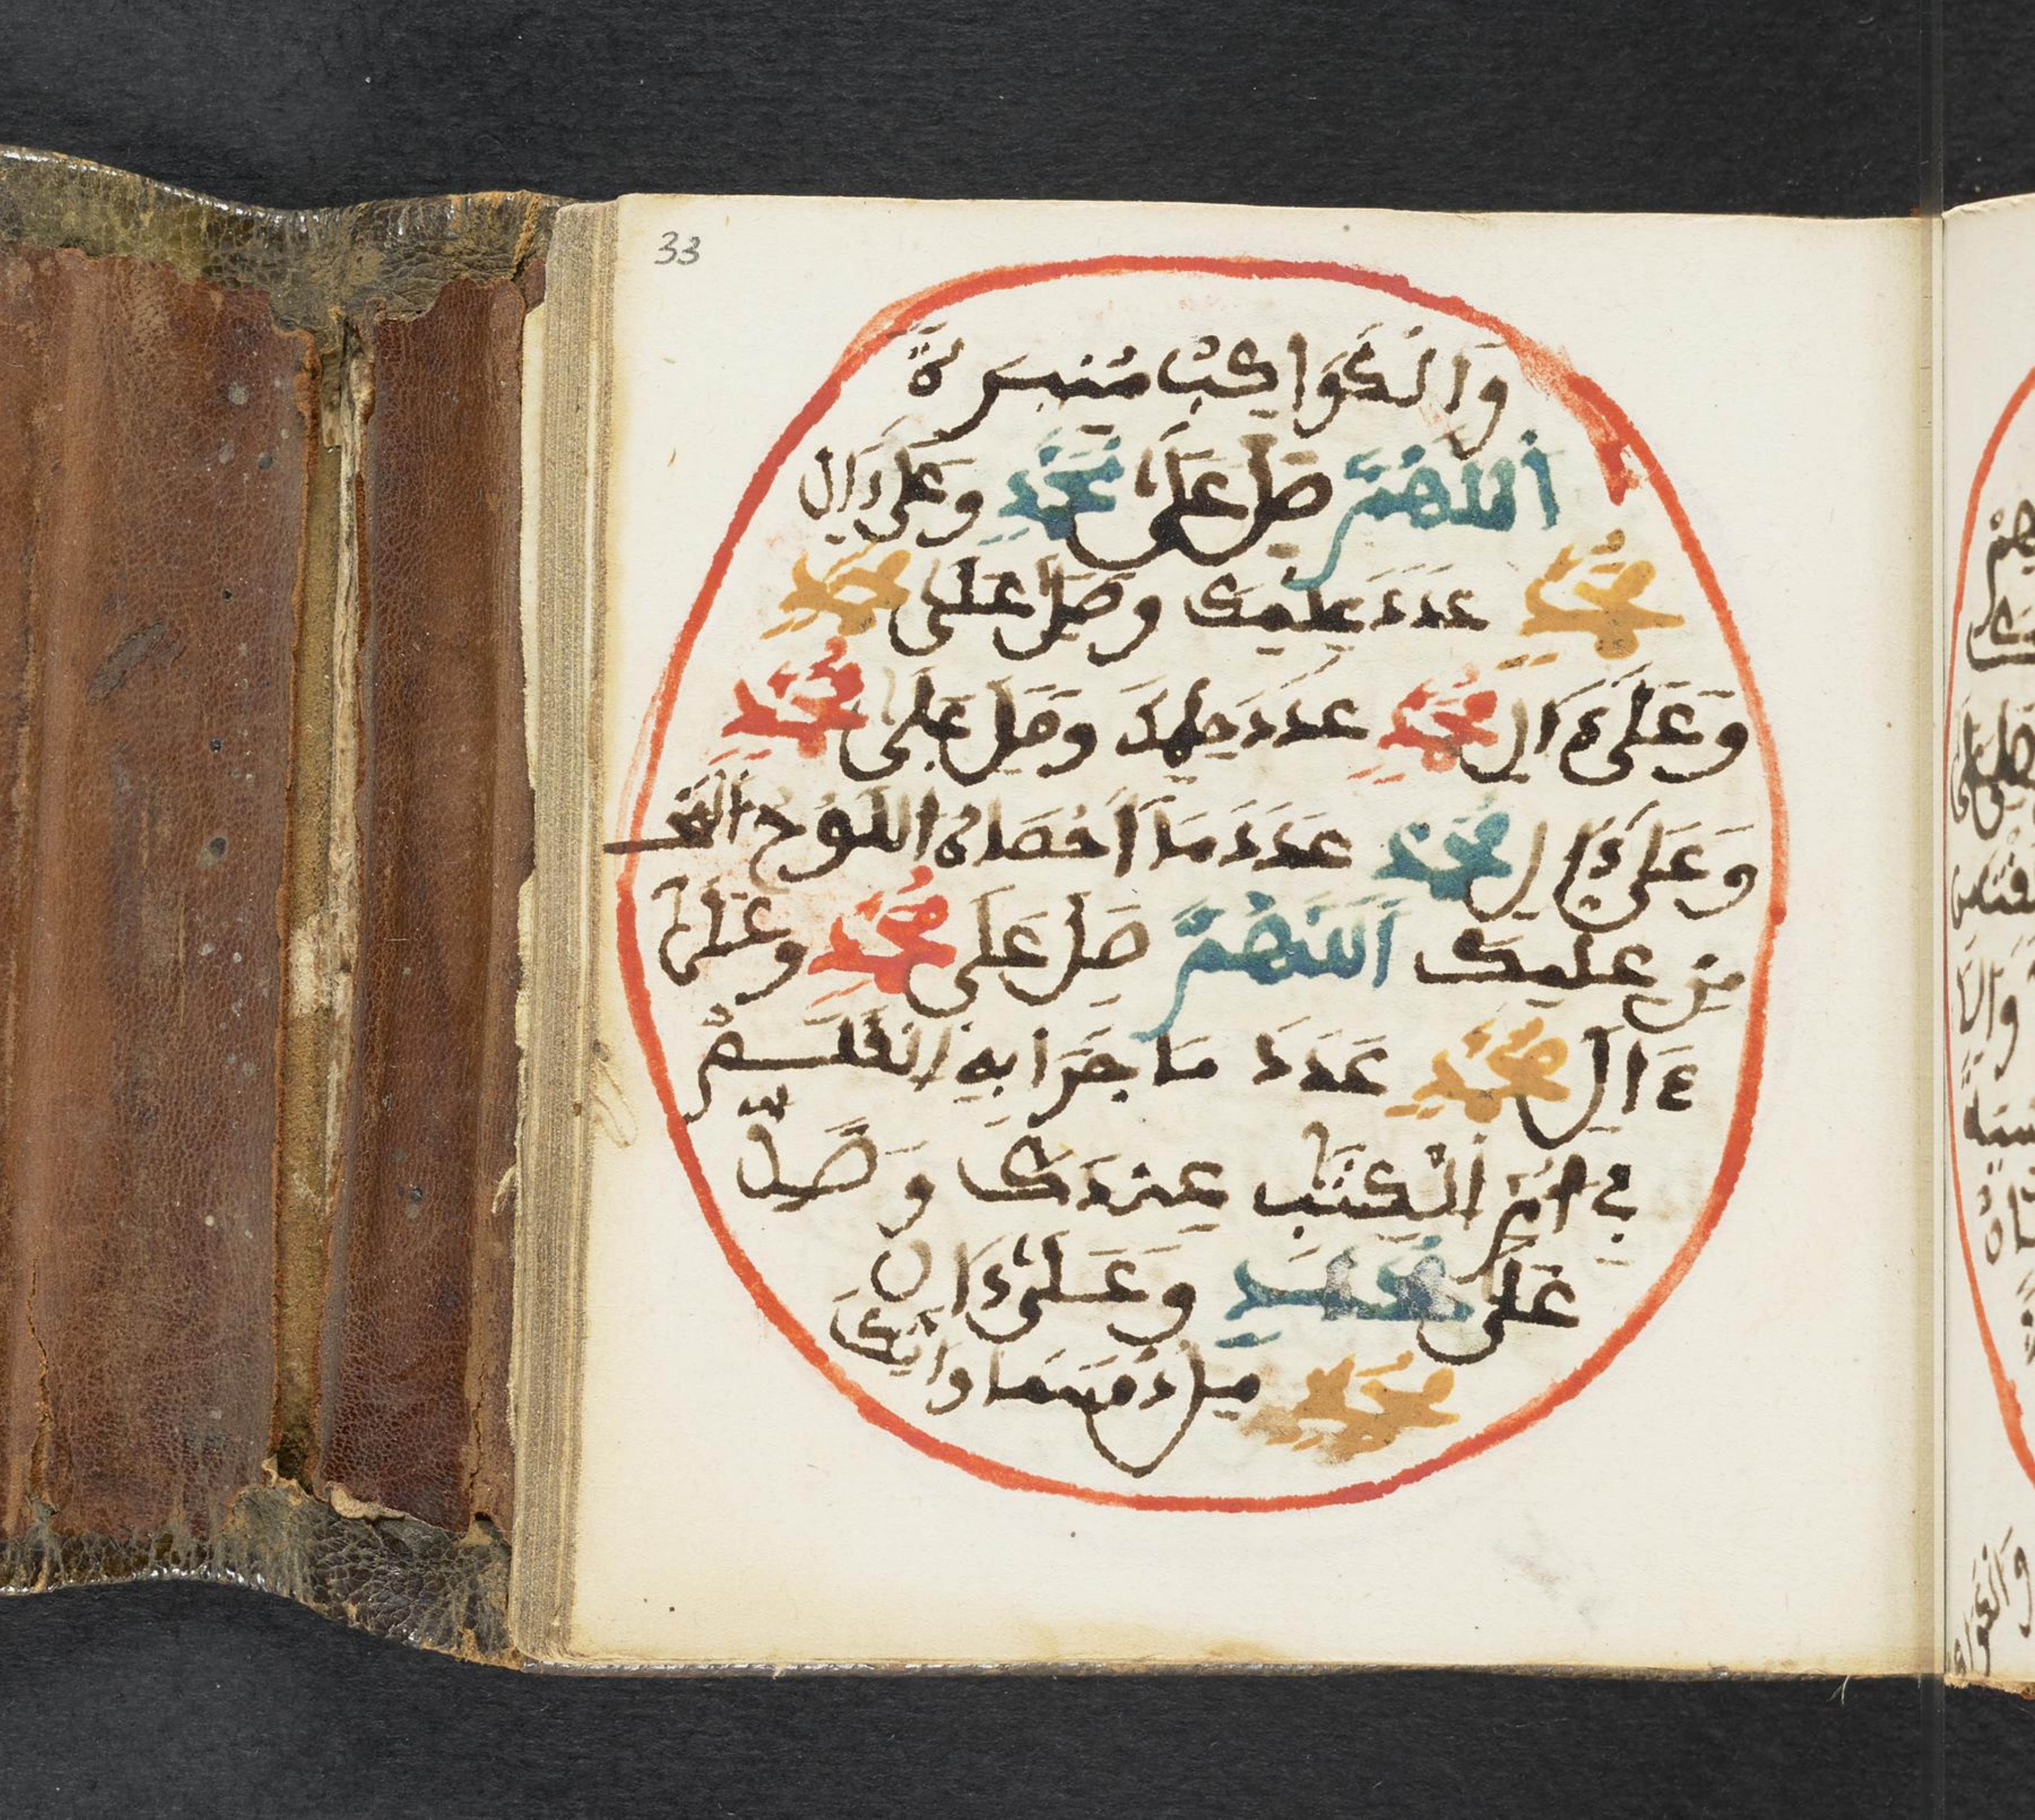 33
وَالْكَوَاكِبُ مُنِيرَةً
اَللهُمَّ صَلِّ عَلَى مُحَمَّدٍ وَعَلَى ءَالِ
مُحَمَّدٍ عَدَدَ عِلْمِكَ وَصَلِّ عَلَى مُحَمَّدٍ
وَعَلَى ءَالِ مُحَمَّدٍ عَدَدَ حِلْمِكَ وَصَلِّ عَلَى مُحَمَّدٍ
وَعَلَى ءَالِ مُحَمَّدٍ عَدَدَ مَا أَحْصَاهُ اللَّوْحُ
مِنْ عِلْمِكَ اَللَّهُمَّ صَلِّ عَلَى مُحَمَّدٍ وَعَلَى
ءَالِ مُحَمَّدٍ عَدَدَ مَا جَرَا بِهِ الْقَلَمُ
فِي أُمِّ الْكِتَٰبِ عِنْدَكَ وَصَلِّ
عَلَى مُحَمَّدٍ وَعَلَى ءَالِ
مُحَمَّدٍ